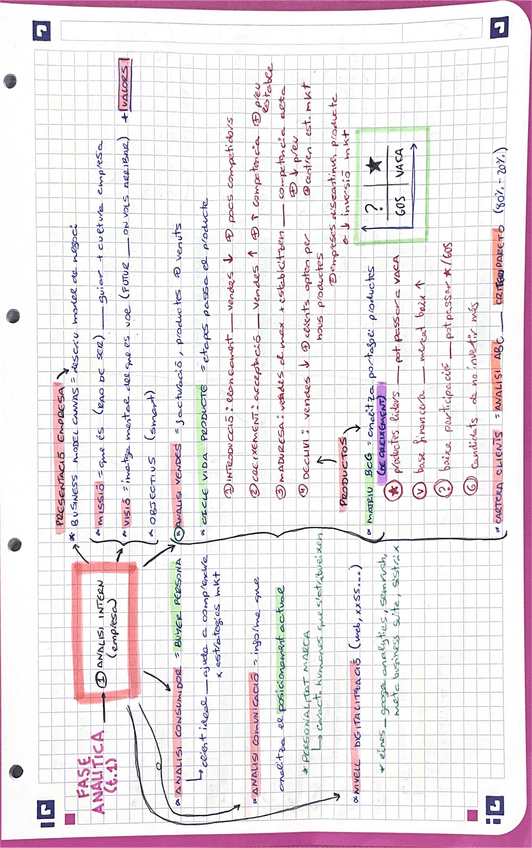 FASE
ANALÍTICA
(6.1)
① ANALISI INTERN
(empresa)
PRESENTACIÓ EMPRESA
* BUSINESS MODEL CANVAS = descriu model de negoci
* MISSIÓ = que és (RAÓ DE SER) __ guiar + cultura empresa
* VISIÓ = imatge mental del que es vol (FUTUR __ ON VOLS ARRIBAR) + VALORS
* OBJECTIUS (smart)
* ANALISI VENDES = facturació, productes + venuts
* CICLE VIDA PRODUCTE = etapes passa el producte
① INTRODUCCIÓ: llançament __ vendes ↓ ⊕ pocs competidors
② CREIXEMENT: acceptació __ vendes ↑ ⊕ ↑ competència ⊕ preu
estable
③ MADURESA: vendes al max + estabilitzen __ competència alta
⊕ ↓ preu
⊕ canvien est. mkt
④ DECLIVI: vendes ↓ ⊕ clients opten per
nous productes
⊕ empreses discontinuen producte
o ↓ inversió mkt
PRODUCTES
* MATRIU BCG = analitza portafoli productes
(DE CREIXEMENT)
★ productes líders __ pot passar a VACA
V base financera __ mercat baix ↑
? baixa participació __ pot passar ★/GOS
G candidats de no invertir més
? ★
GOS VACA
* CARTERA CLIENTS = ANALISI ABC __ CRITERI PARETO (80% - 20%)
* ANALISI CONSUMIDOR = BUYER PERSONA
↳ client ideal __ ajuda a comprendre
x estratègies mkt
* ANALISI COMUNICACIÓ = informe que
analitza el posicionament actual
* PERSONALITAT MARCA
↳ caract. humanes que s'atribueixen
* NIVELL DIGITALITZACIÓ (web, xxss...)
* eines __ google analytics, semrush,
meta business suite, sistrix